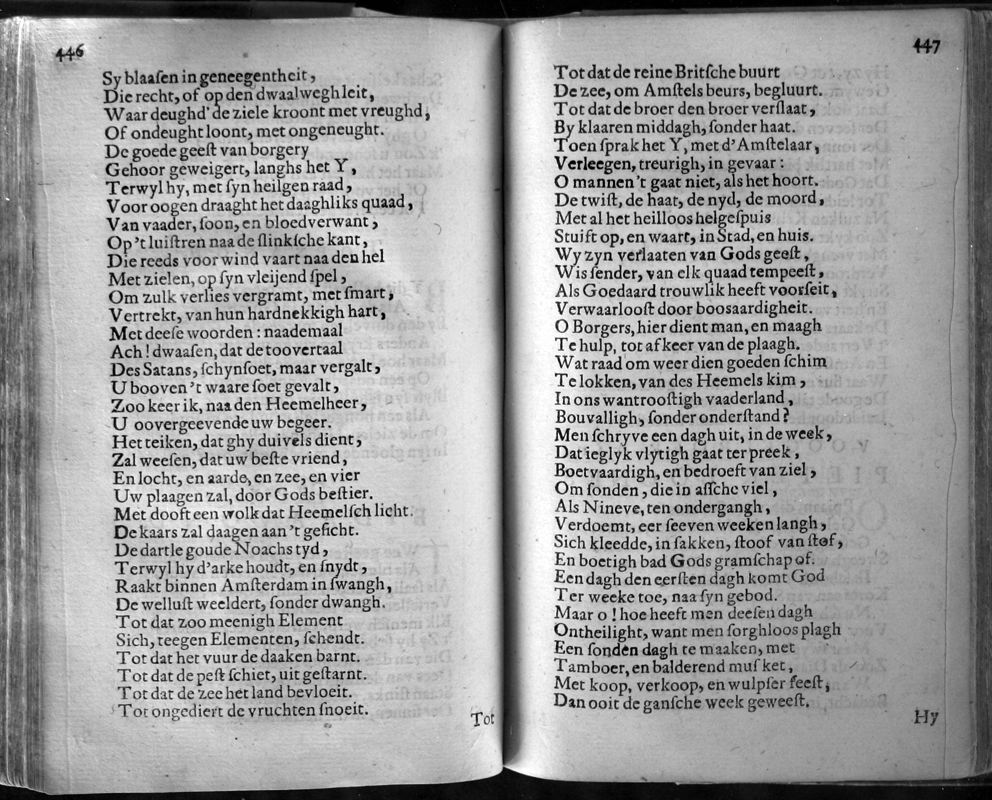 446
Sy blaaſen in geneegentheit,
Die recht, of op den dwaalwegh leit,
Waar deughd' de ziele kroont met vreughd,
Of ondeught loont, met ongeneught.
De goede geeſt van borgery
Gehoor geweigert, langhs het Y,
Terwyl hy, met ſyn heilgen raad,
Voor oogen draaght het daaghliks quaad,
Van vaader, ſoon, en bloedverwant,
Op 't luiſtren naa de ſlinkſche kant,
Die reeds voor wind vaart naa den hel
Met zielen, op ſyn vleijend ſpel,
Om zulk verlies vergramt, met ſmart,
Vertrekt, van hun hardnekkigh hart,
Met deeſe woorden: naademaal
Ach! dwaaſen, dat de toovertaal
Des Satans, ſchynſoet, maar vergalt,
U booven 't waare ſoet gevalt,
Zoo keer ik, naa den Heemelheer,
U oovergeevende uw begeer.
Het teiken, dat ghy duivels dient,
Zal weeſen, dat uw beſte vriend,
En locht, en aarde, en zee, en vier
Uw plaagen zal, door Gods beſtier.
Met dooft een wolk dat Heemelſch licht.
De kaars zal daagen aan 't geſicht.
De dartle goude Noachs tyd,
Terwyl hy d'arke houdt, en ſnydt,
Raakt binnen Amſterdam in ſwangh,
De welluſt weeldert, ſonder dwangh.
Tot dat zoo meenigh Element
Sich, teegen Elementen, ſchendt.
Tot dat het vuur de daaken barnt.
Tot dat de peſt ſchiet, uit geſtarnt.
Tot dat de zee het land bevloeit.
Tot ongediert de vruchten ſnoeit.
Tot
447
Tot dat de reine Britſche buurt
De zee, om Amſtels beurs, begluurt.
Tot dat de broer den broer verſlaat,
By klaaren middagh, ſonder haat.
Toen ſprak het Y, met d'Amſtelaar,
Verleegen, treurigh, in gevaar:
O mannen 't gaat niet, als het hoort.
De twiſt, de haat, de nyd, de moord,
Met al het heilloos helgeſpuis
Stuift op, en waart, in Stad, en huis.
Wy zyn verlaaten van Gods geeſt,
Wis ſender, van elk quaad tempeeſt,
Als Goedaard trouwlik heeft voorſeit,
Verwaarlooſt door boosaardigheit.
O Borgers, hier dient man, en maagh
Te hulp, tot afkeer van de plaagh.
Wat raad om weer dien goeden ſchim
Te lokken, van des Heemels kim,
In ons wantrooſtigh vaaderland,
Bouvalligh, ſonder onderſtand?
Men ſchryve een dagh uit, in de week,
Dat ieglyk vlytigh gaat ter preek,
Boetvaardigh, en bedroeft van ziel,
Om ſonden, die in aſſche viel,
Als Nineve, ten ondergangh,
Verdoemt, eer ſeeven weeken langh,
Sich kleedde, in ſakken, ſtoof van ſtof,
En boetigh bad Gods gramſchap of.
Een dagh den eerſten dagh komt God
Ter weeke toe, naa ſyn gebod.
Maar o! hoe heeft men deeſen dagh
Ontheilight, want men ſorghloos plagh
Een ſonden dagh te maaken, met
Tamboer, en balderend muſket,
Met koop, verkoop, en wulpſer feeſt,
Dan ooit de ganſche week geweeſt.
Hy